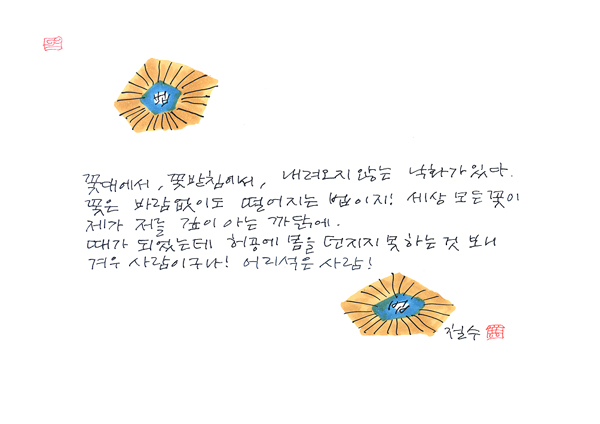 법
꽃대에서, 꽃받침에서, 내려오지 않는 낙화가 있다.
꽃은 바람 없이도 떨어지는 법이지! 세상 모든 꽃이
제가 저를 깊이 아는 까닭에.
때가 되었는데 허공에 몸을 던지지 못하는 것 보니
겨우 사람이구나! 어리석은 사람!
법
철수